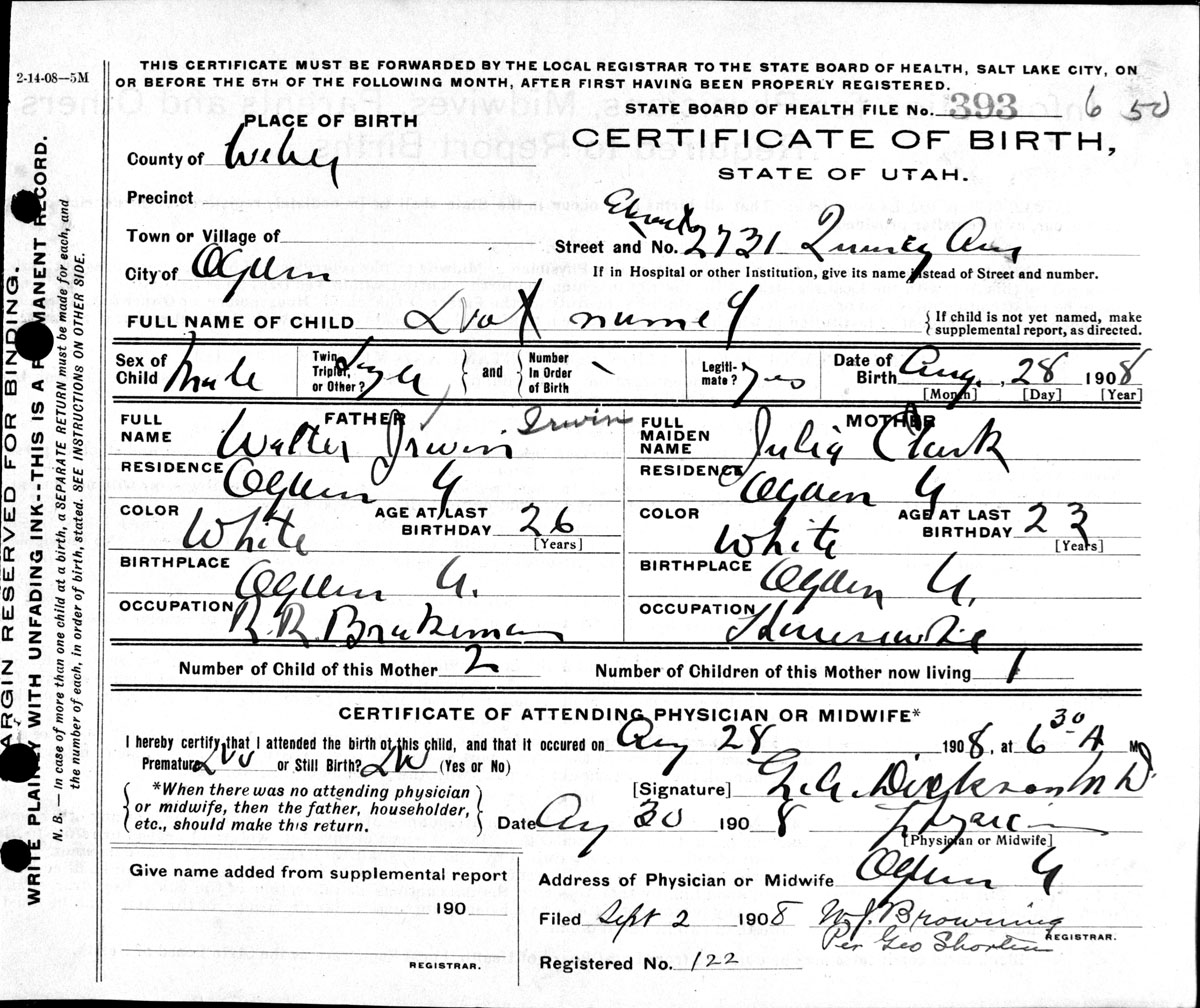 2-14-08—5M
THIS CERTIFICATE MUST BE FORWARDED BY THE LOCAL REGISTRAR TO THE STATE BOARD OF HEALTH, SALT LAKE CITY, ON
OR BEFORE THE 5TH OF THE FOLLOWING MONTH, AFTER FIRST HAVING BEEN PROPERLY REGISTERED.
STATE BOARD OF HEALTH FILE No. 393 6 50
PLACE OF BIRTH
CERTIFICATE OF BIRTH,
STATE OF UTAH.
County of Weber
Precinct
Town or Village of
Street and No. 2731 Quincy Ave
City of Ogden
If in Hospital or other Institution, give its name instead of Street and number.
FULL NAME OF CHILD
If child is not yet named, make
supplemental report, as directed.
Sex of Child Male
Twin, Triplet, or Other?
and
Number In Order of Birth
Legiti-mate? yes
Date of Birth Aug. , 28 1908
[Month] [Day] [Year]
FATHER
FULL NAME Walter Irwin Irwin
RESIDENCE Ogden U
COLOR White
AGE AT LAST BIRTHDAY 26
[Years]
BIRTHPLACE Ogden U.
OCCUPATION R.R. Brakeman
MOTHER
FULL MAIDEN NAME Julia Clark
RESIDENCE Ogden U
COLOR White
AGE AT LAST BIRTHDAY 23
[Years]
BIRTHPLACE Ogden U.
OCCUPATION Housewife
Number of Child of this Mother 2
Number of Children of this Mother now living 1
CERTIFICATE OF ATTENDING PHYSICIAN OR MIDWIFE*
I hereby certify that I attended the birth of this child, and that it occured on Aug 28 1908, at 6 30 A M
Premature or Still Birth? (Yes or No)
*When there was no attending physician
or midwife, then the father, householder,
etc., should make this return.
[Signature] Dickson MD.
Date Aug 30 1908
[Physician or Midwife]
Address of Physician or Midwife Ogden U
Give name added from supplemental report
190
REGISTRAR.
Filed Sept 2 1908 W.J. Browning
Per Geo Shorten
REGISTRAR.
Registered No. 122
MARGIN RESERVED FOR BINDING.
WRITE PLAINLY WITH UNFADING INK--THIS IS A PERMANENT RECORD.
N. B.— In case of more than one child at a birth, a SEPARATE RETURN must be made for each, and
the number of each, in order of birth, stated. SEE INSTRUCTIONS ON OTHER SIDE.